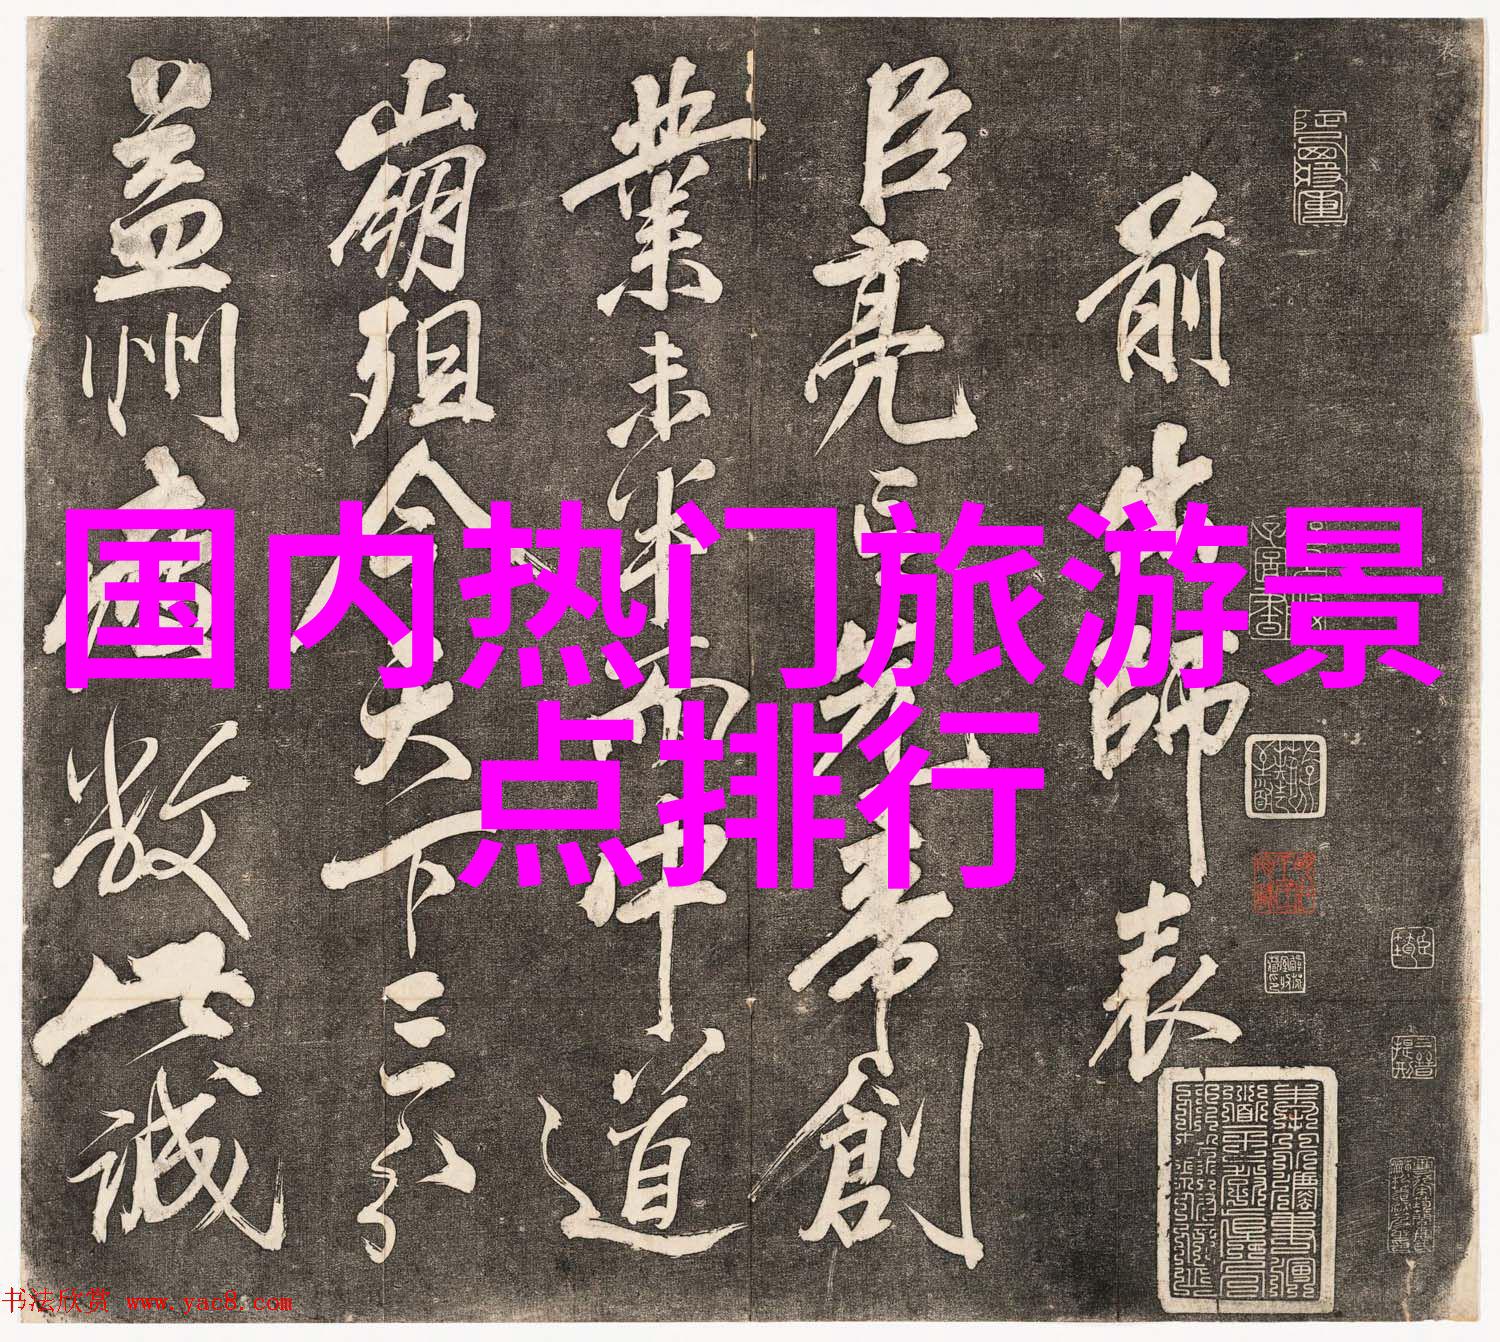 前出師表
臣亮言先帝創
業未半而中道
崩殂今天下三分
益州疲敝此誠
国内热门旅游景
点排行
书法欣赏 www.yac8.com